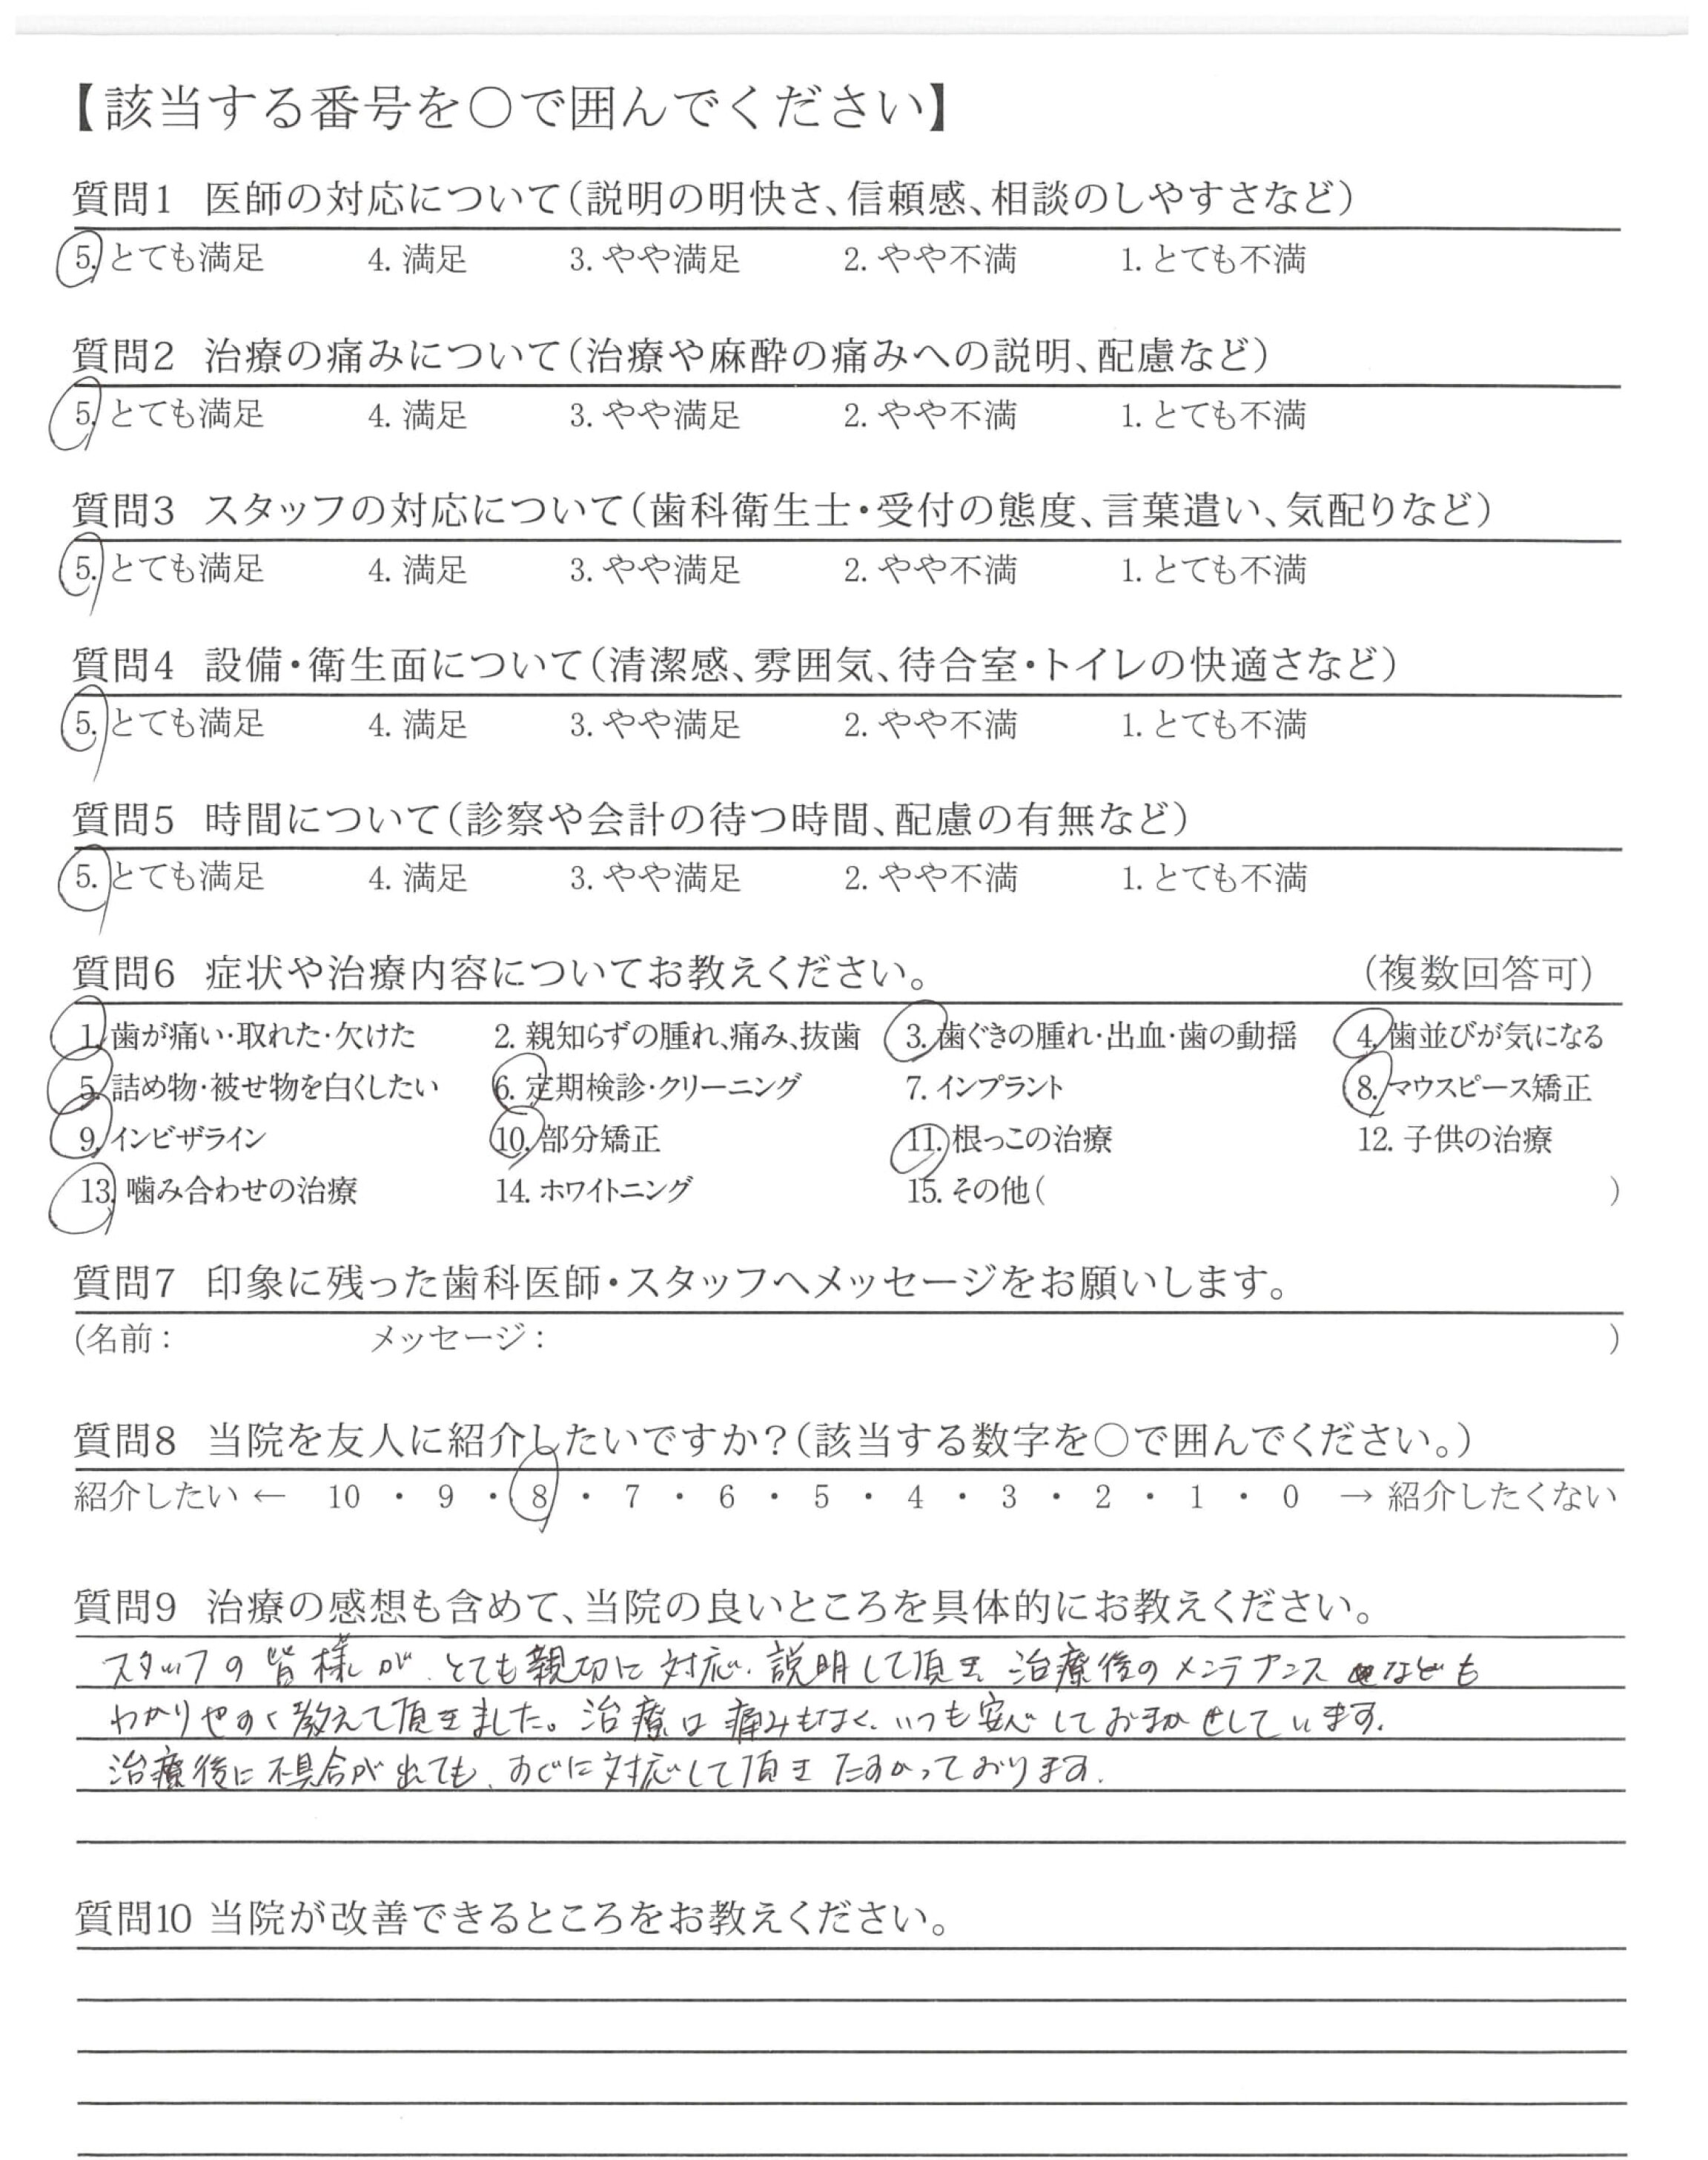 【該当する番号を○で囲んでください】
質問1 医師の対応について(説明の明快さ、信頼感、相談のしやすさなど)
5. とても満足 4. 満足 3. やや満足 2. やや不満 1. とても不満
質問2 治療の痛みについて(治療や麻酔の痛みへの説明、配慮など)
5. とても満足 4. 満足 3. やや満足 2. やや不満 1. とても不満
質問3 スタッフの対応について(歯科衛生士・受付の態度、言葉遣い、気配りなど)
5. とても満足 4. 満足 3. やや満足 2. やや不満 1. とても不満
質問4 設備・衛生面について(清潔感、雰囲気、待合室・トイレの快適さなど)
5. とても満足 4. 満足 3. やや満足 2. やや不満 1. とても不満
質問5 時間について(診察や会計の待つ時間、配慮の有無など)
5. とても満足 4. 満足 3. やや満足 2. やや不満 1. とても不満
質問6 症状や治療内容についてお教えください。 (複数回答可)
1. 歯が痛い・取れた・欠けた 2. 親知らずの腫れ、痛み、抜歯 3. 歯ぐきの腫れ・出血・歯の動揺 4. 歯並びが気になる
5. 詰め物・被せ物を白くしたい 6. 定期検診・クリーニング 7. インプラント 8. マウスピース矯正
9. インビザライン 10. 部分矯正 11. 根っこの治療 12. 子供の治療
13. 噛み合わせの治療 14. ホワイトニング 15. その他( )
質問7 印象に残った歯科医師・スタッフへメッセージをお願いします。
(名前: メッセージ: )
質問8 当院を友人に紹介したいですか?(該当する数字を○で囲んでください。)
紹介したい ← 10 ・ 9 ・ 8 ・ 7 ・ 6 ・ 5 ・ 4 ・ 3 ・ 2 ・ 1 ・ 0 → 紹介したくない
質問9 治療の感想も含めて、当院の良いところを具体的にお教えください。
スタッフの皆様が、とても親切に対応、説明して頂き 治療後のメンテナンスなども
わかりやすく教えて頂きました。治療は痛みもなく、いつも安心しておまかせしています。
治療後に不具合が出ても、すぐに対応して頂き たすかっております。
質問10 当院が改善できるところをお教えください。